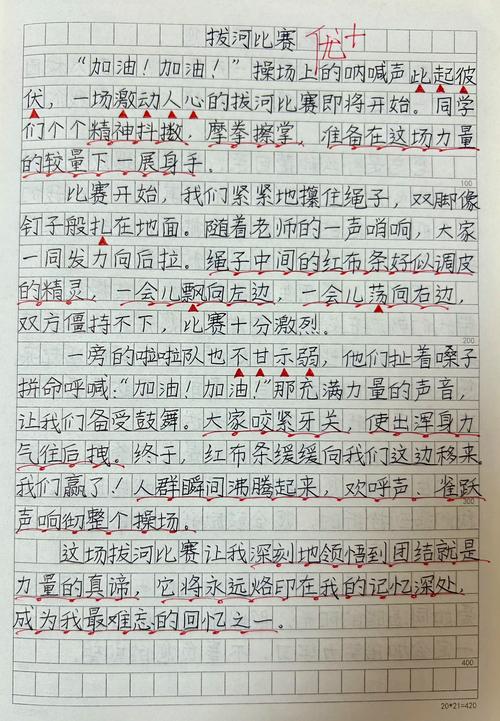 拔河比赛 优+
“加油！加油！”操场上的呐喊声此起彼
伏，一场激动人心的拔河比赛即将开始。同学
们个个精神抖擞，摩拳擦掌，准备在这场力量
的较量下一展身手。
100
比赛开始，我们紧紧地攥住绳子，双脚像
钉子般扎在地面。随着老师的一声哨响，大家
一同发力向后拉。绳子中间的红布条好似调皮
的精灵，一会儿飘向左边，一会儿荡向右边，
双方僵持不下，比赛十分激烈。
200
一旁的啦啦队也不甘示弱，他们扯着嗓子
拼命呼喊：“加油！加油！”那充满力量的声音，
让我们备受鼓舞。大家咬紧牙关，使出浑身力
气往后拽。终于，红布条缓缓向我们这边移来。
我们赢了！人群瞬间沸腾起来，欢呼声、雀跃
300
声响彻整个操场。
这场拔河比赛让我深刻地领悟到团结就是
力量的真谛，它将永远烙印在我的记忆深处，
成为我最难忘的回忆之一。
400
20*21=420